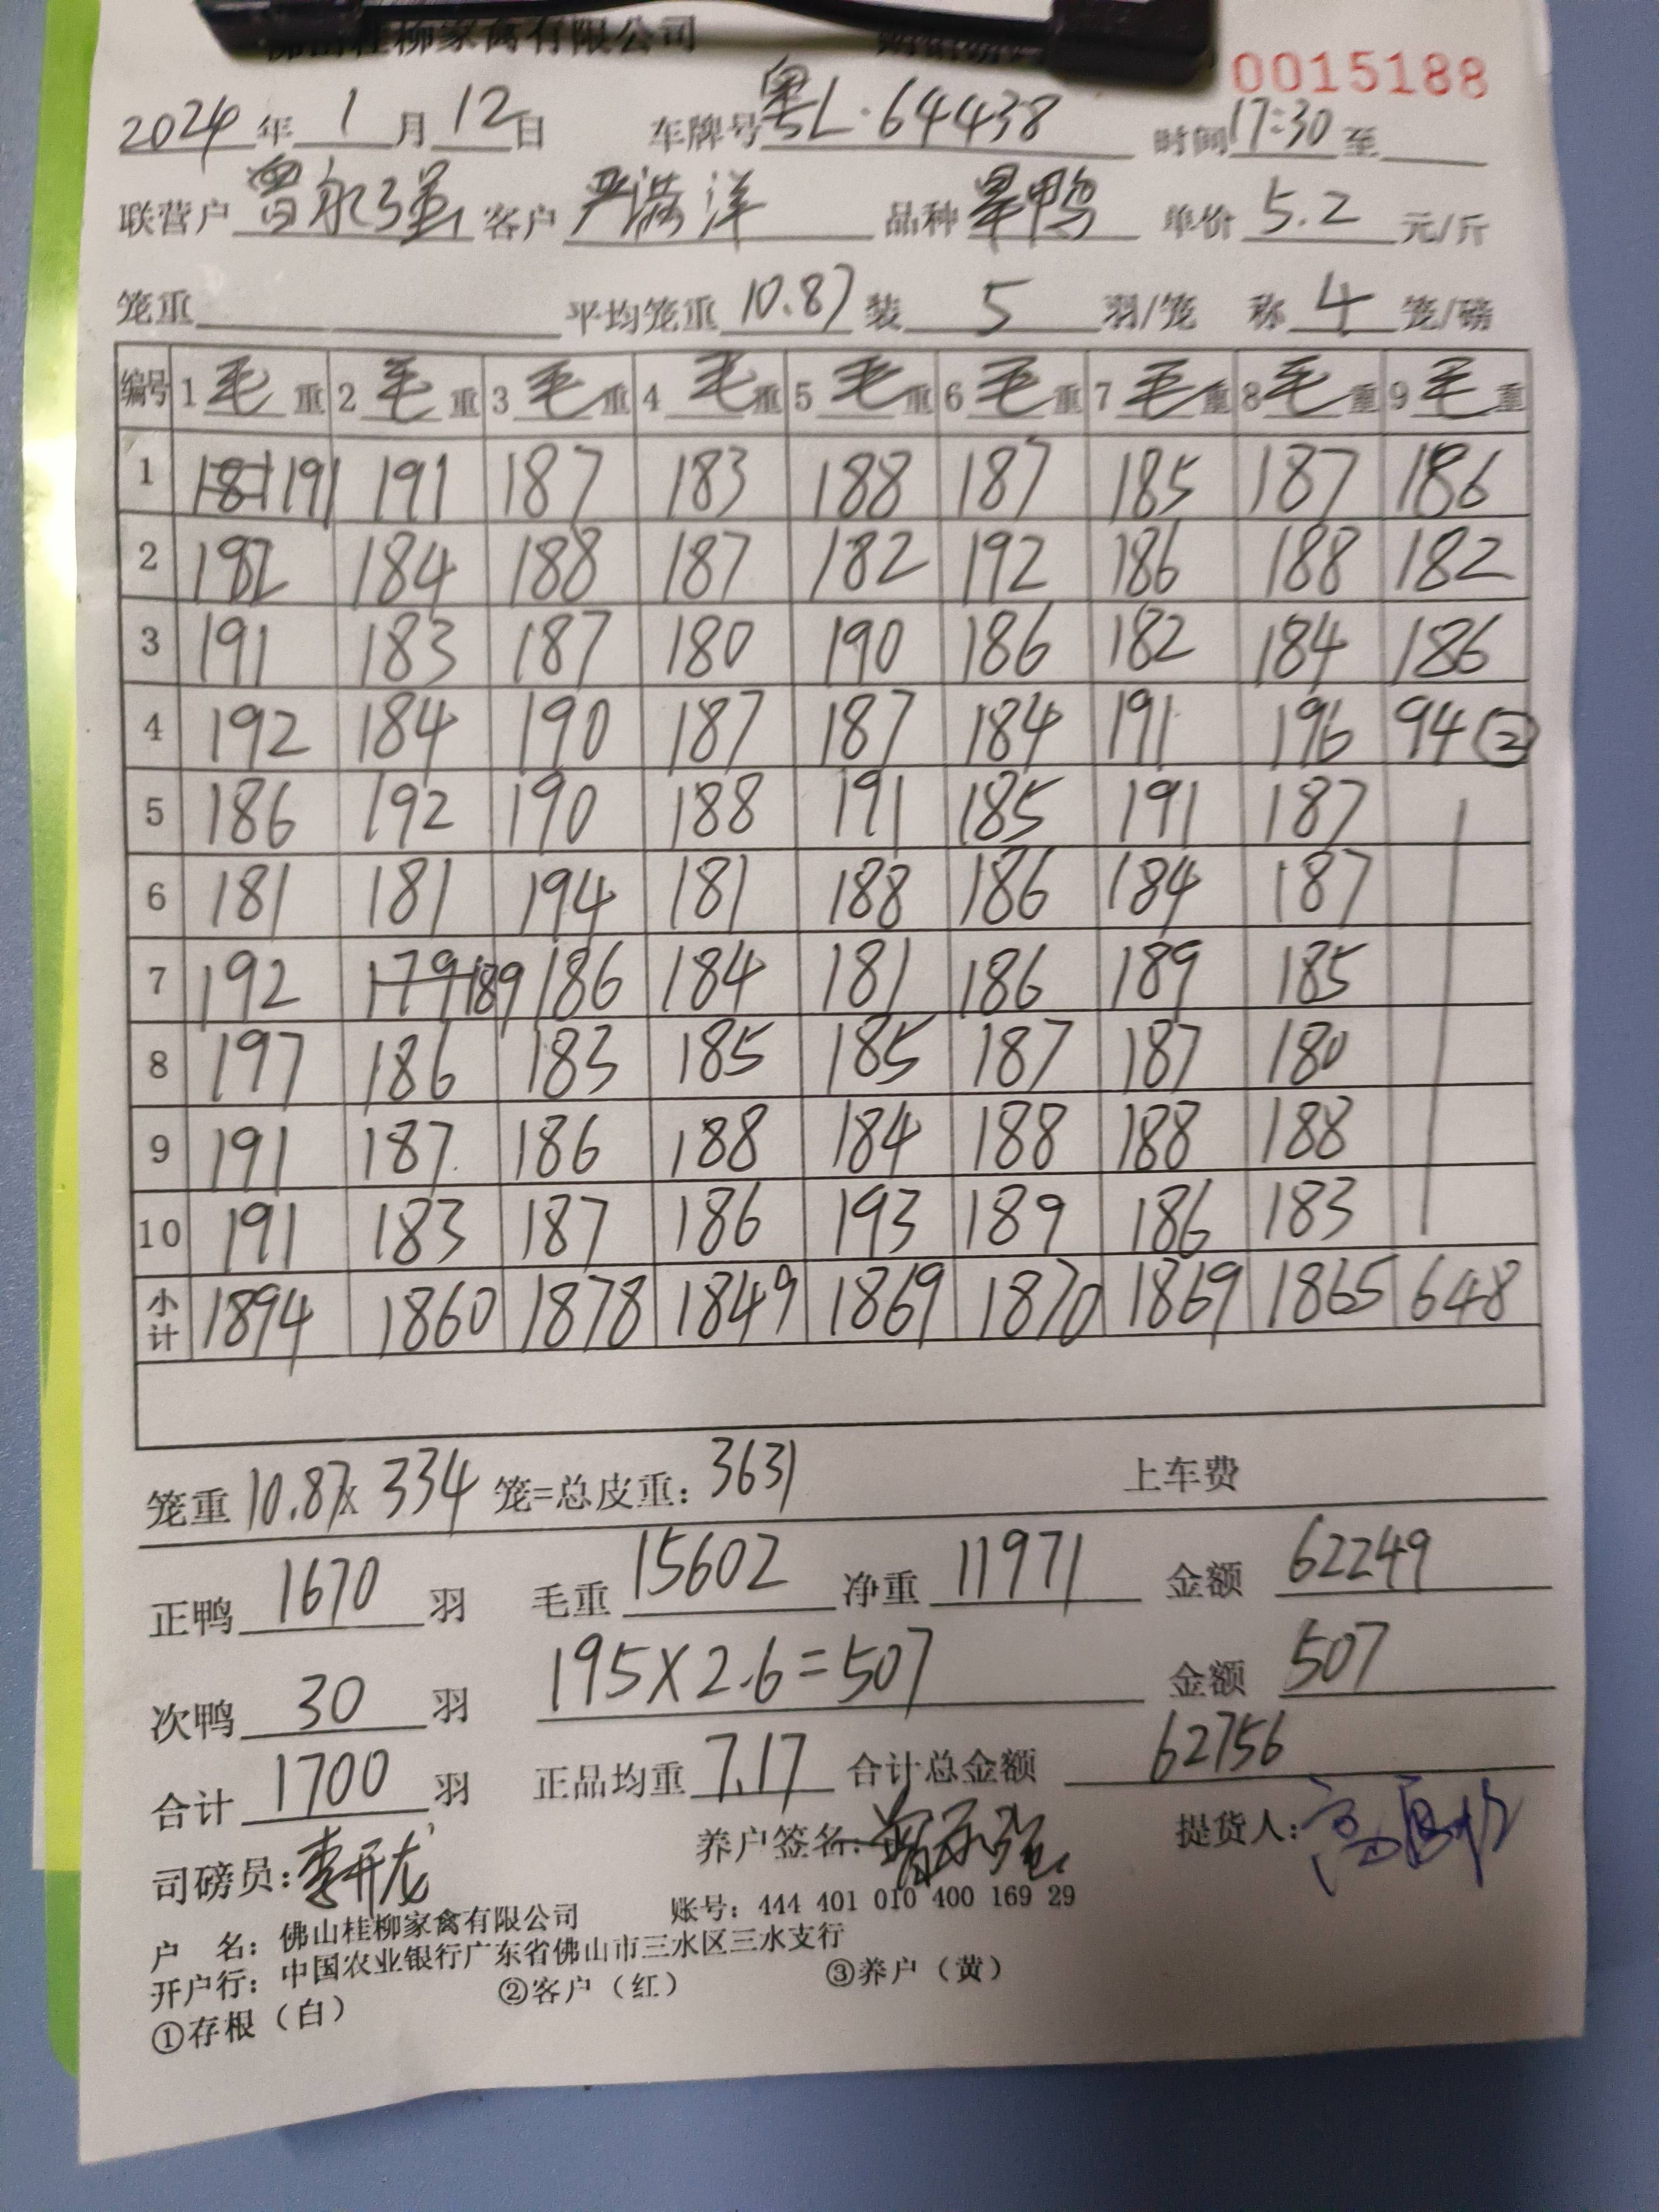 佛山桂柳家禽有限公司
0015188
2024 年 1 月 12 日 车牌号 粤L·64438 时间 17:30 至
联营户 曾永强 客户 严满洋 品种 旱鸭 单价 5.2 元/斤
笼重 平均笼重 10.87 装 5 羽/笼 称 4 笼/磅
编号 1 毛 重 2 毛 重 3 毛 重 4 毛 重 5 毛 重 6 毛 重 7 毛 重 8 毛 重 9 毛 重
1 181 191 191 187 183 188 187 185 187 186
2 182 184 188 187 182 192 186 188 182
3 191 183 187 180 190 186 182 184 186
4 192 184 190 187 187 184 191 196 94 ②
5 186 192 190 188 191 185 191 187
6 181 181 194 181 188 186 184 187
7 192 179 189 186 184 181 186 189 185
8 197 186 183 185 185 187 187 180
9 191 187 186 188 184 188 188 188
10 191 183 187 186 193 189 186 183
小计 1894 1860 1878 1849 1869 1870 1869 1865 648
笼重 10.87 x 334 笼=总皮重: 3631 上车费
正鸭 1670 羽 毛重 15602 净重 11971 金额 62249
次鸭 30 羽 195X2.6=507 金额 507
合计 1700 羽 正品均重 7.17 合计总金额 62756
司磅员: 李开龙 养户签名: 曾永强 提货人:
户 名: 佛山桂柳家禽有限公司 账号: 444 401 010 400 169 29
开户行: 中国农业银行广东省佛山市三水区三水支行
①存根（白） ②客户（红） ③养户（黄）